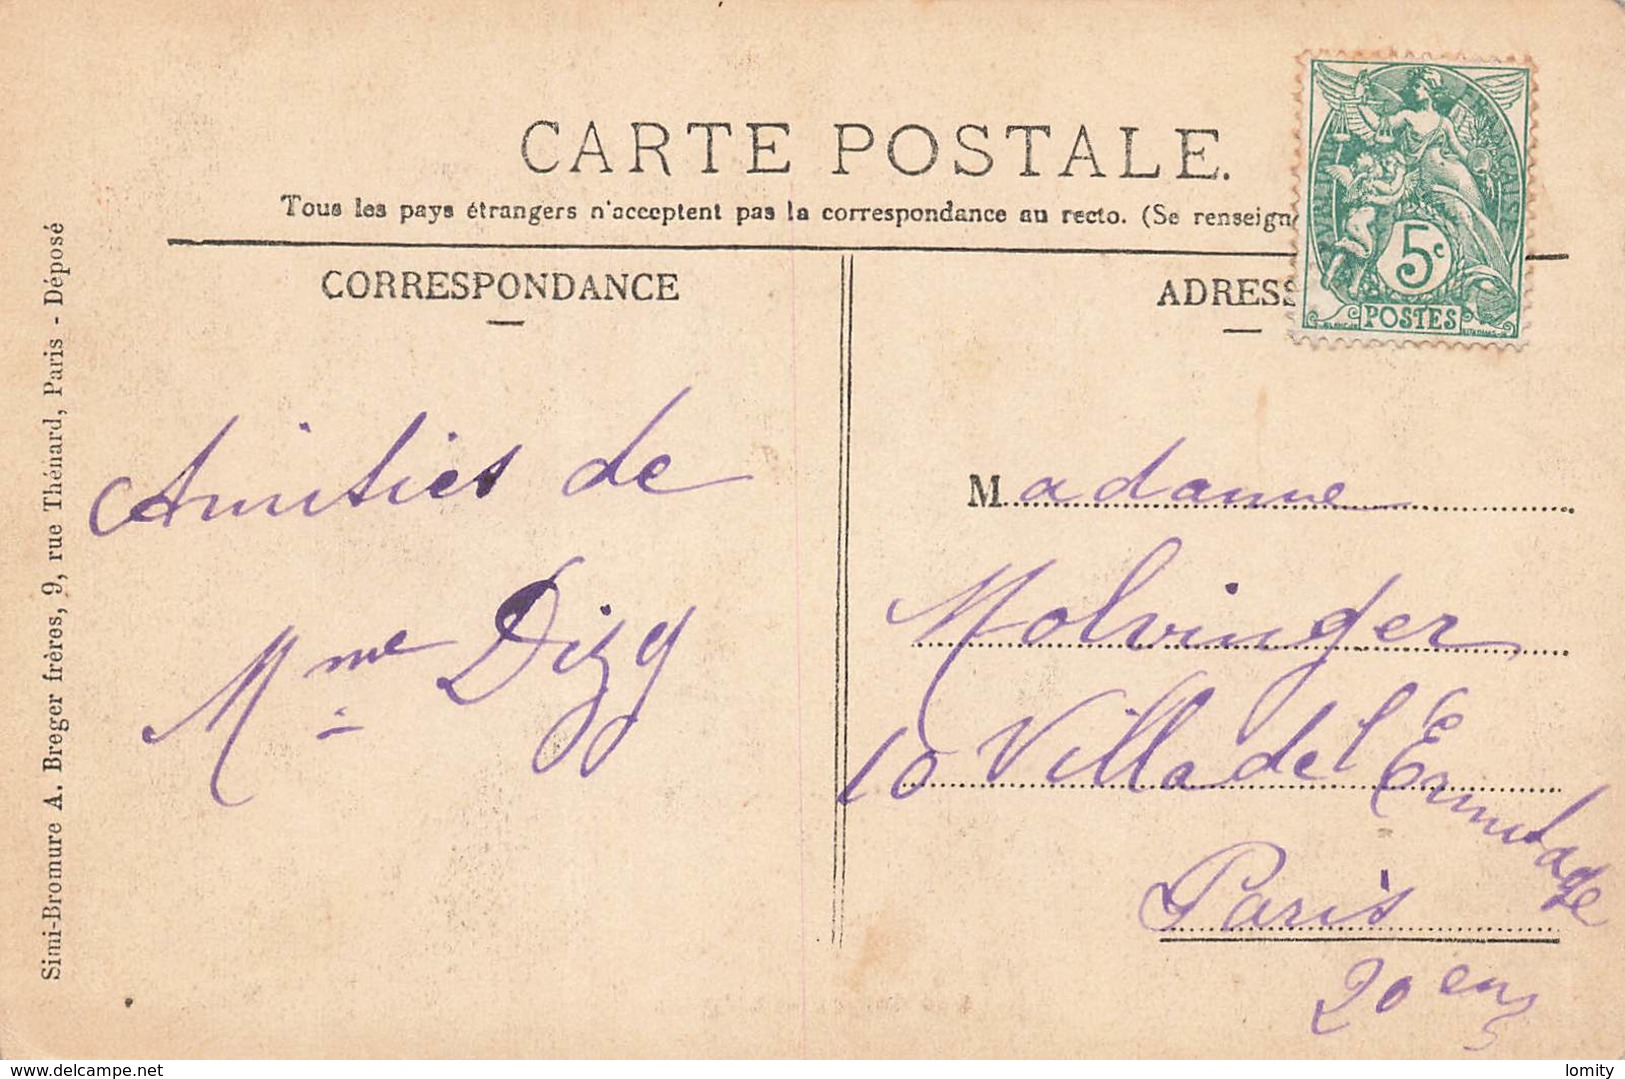 CARTE POSTALE.
Tous les pays étrangers n'acceptent pas la correspondance au recto. (Se renseign
CORRESPONDANCE
ADRESS
5c
POSTES
Simi-Bromure A. Breger frères, 9, rue Thénard, Paris - Déposé
Amitiés de
Mme Dizy
Madame
Molvinger
10 Villa de l'Ermitage
Paris
20 em
delcampe.net
lomity